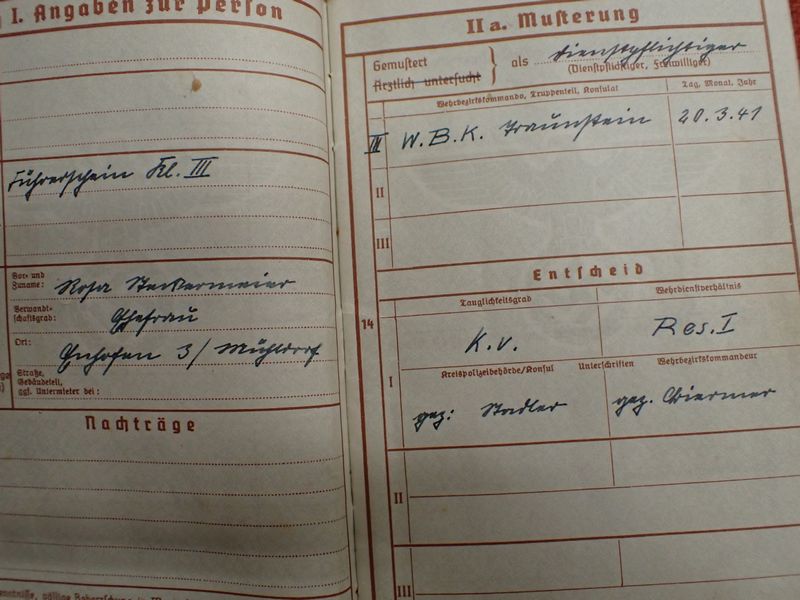 I. Angaben zur Person
Führerschein Kl. III
Vor- und
Zuname: Rosa Steckermeier
Verwandt-
schaftsgrad: Ehefrau
Ort: 3/ Mühldorf
Straße,
Gebäudeteil,
ggf. Untermieter bei:
Nachträge
II a. Musterung
Gemustert
Ärztlich untersucht
als Dienstpflichtiger
(Dienstpflichtiger, Freiwilliger)
Wehrbezirkskommando, Truppenteil, Konsulat
Tag, Monat, Jahr
III W.B.K. Traunstein 20.3.41
II
III
Entscheid
14
Tauglichkeitsgrad
Wehrdienstverhältnis
k.v.
Res. I
I
Kreispolizeibehörde/Konsul
Unterschriften
Wehrbezirkskommandeur
gez: Stadler
gez.
II
III